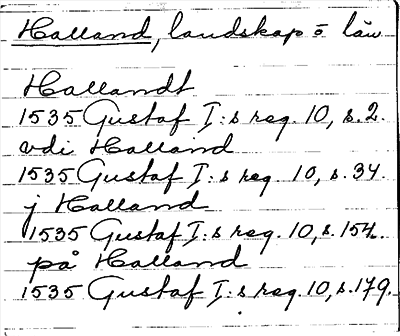 Halland, landskap o län
Hallandt
1535 Gustaf I:s reg. 10, s. 2.
vdi Halland
1535 Gustaf I:s reg. 10, s. 34.
j Halland
1535 Gustaf I:s reg. 10, s. 154.
på Halland
1535 Gustaf I:s reg. 10, s. 179.